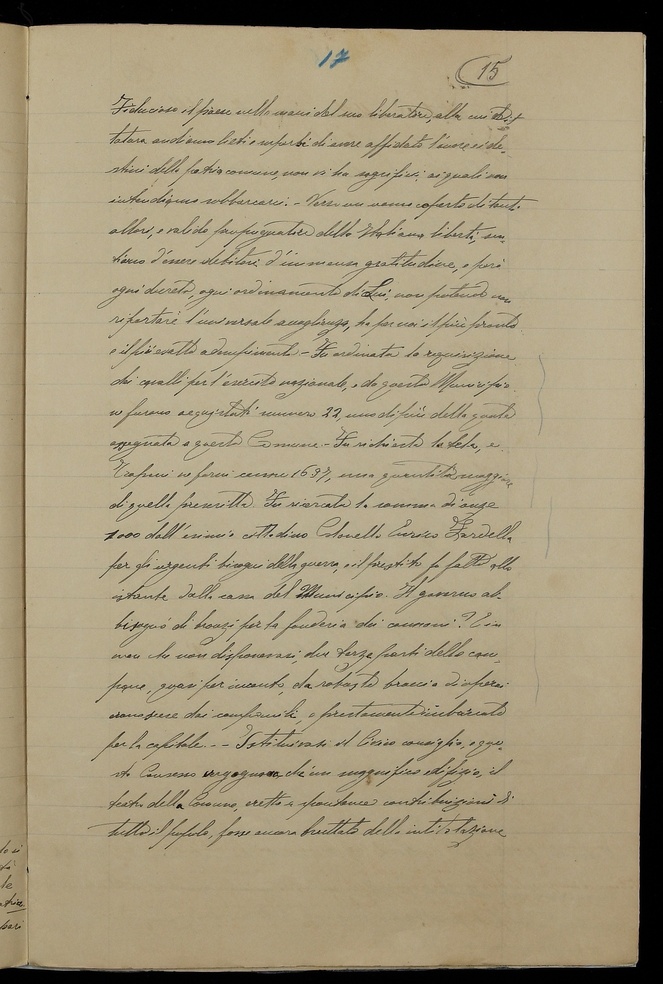 17
15
Fiducioso il paese nelle mani del suo liberatore, alla cui dit-
tatura andiamo lieti e superbi di avere affidato l'onore e i de-
stini della patria comune, non vi ha sagrifizi, ai quali non
intendiamo sobbarcarci. - Verso un uomo coperto di tanti
allori, e valido propugnatore della Italiana libertà, sen-
tiamo d'essere debitori d'immensa gratitudine, e però
ogni decreto, ogni ordinamento di Lui, non potendo non
riportare l'universale accoglienza, ha per noi il più pronto
e il più esatto adempimento - Fu ordinata la requisizione
dei cavalli per l'esercito nazionale, e da questo Municipio
ne furono acquistati numero 22, uno di più della quota
assegnata a questo Comune - Fu richiesta la tela, e
Trapani ne fornì canne 1697, una quantità maggiore
di quella premessa. Fu ricercata la somma di onze
1000 dall'esimio cittadino Colonello Enrico Fardella
per gli urgenti bisogni della guerra, e il prestito fu fatto allo
istante dalla cassa del Municipio. Il governo ab-
bisognò di bronzi per la fonderia dei cannoni?
non che non disponevasi, due terze parti delle cam-
pane, quasi per incanto da robuste braccia di operai
dai campanili, e prestamente imbarcate
per la capitale. - - Istituivasi il Civico consiglio, e
sto Consesso vergognava che un magnifico edifizio, il
teatro della Comune, eretto a spontanee contribuzioni di
tutto il popolo, fosse ancora bruttato della intitolazione